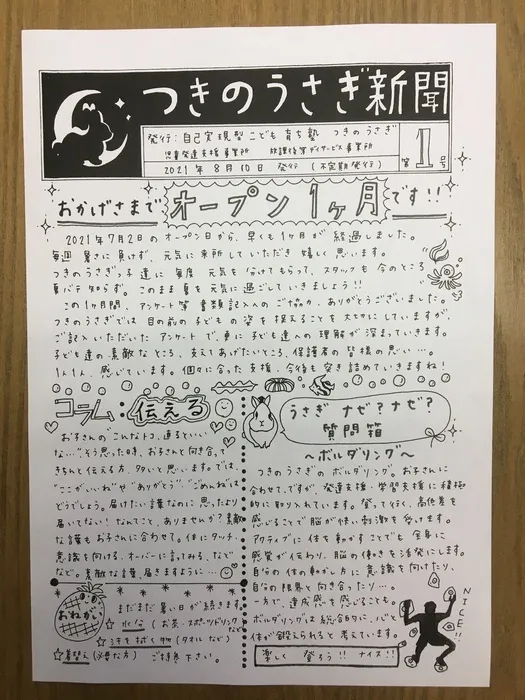 つきのうさぎ新聞
発行：自己実現型こども育ち塾 つきのうさぎ
児童発達支援事業所 放課後等デイサービス事業所
2021年 8月10日 発行 (不定期発行)
第1号
おかげさまで オープン1ヶ月です!!
2021年7月2日のオープン日から、早くも1ヶ月が経過しました。
毎週 暑さに負けず、元気に来所していただき嬉しく思います。
つきのうさぎっ子達に毎度 元気を分けてもらって、スタッフも今のところ
夏バテ知らず。このまま夏を元気に過ごしていきましょう!!
この1ヶ月間、アンケート等 書類記入へのご協力、ありがとうございました。
つきのうさぎでは目の前の子どもの姿を捉えることを大切にしていますが、
ご記入いただいたアンケートで、更に子ども達への理解が深まっていきます。
子ども達の素敵なところ、支えてあげたいところ、保護者の皆様の思い…。
1人1人、感じています。個々に合った支援、今後も突き詰めていきますね!
コラム：伝える
お子さんの"こんなトコ、直るといい
な…"そう思った時、お子さんと向き合って
きちんと伝える方、多いと思います。では、
"ここがいいね"や"ありがとう"、"ごめんね"は
どうでしょう。届けたい言葉なのに思ったより
届いてない!なんてこと、ありませんか?素敵
な言葉もお子さんに合わせて。体にタッチ、
意識を向ける、オーバーに言ってみる、など
など。素敵な言葉、届きますように…
おねがい
まだまだ暑い日が続きます。
☆水分(お茶・スポーツドリンクなど)
☆汗を拭く物(タオルなど)
☆着替え(必要な方) ご持参下さい。
うさぎ ナゼ?ナゼ?
質問箱
～ボルダリング～
つきのうさぎのボルダリング。お子さんに
合わせて、ですが、発達支援・学習支援に積極
的に取り入れています。登って行く、高低差を
感じることで脳が快い刺激を受けます。
アクティブに体を動かすことでも全身に
感覚が伝わり、脳の働きを活発にします。
自分の体の動かし方に意識を向けたり、
自分の限界と向き合ったり…
一方で、達成感を感じることも。
ボルダリングは総合的に、心と
体が鍛えられると考えています。
楽しく 登ろう!! ナイス!!
NICE!!